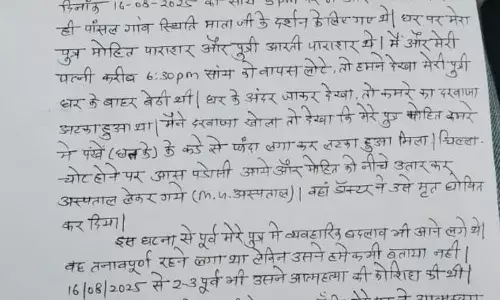 दिनांक 16-08-2025 को सायं 5pm पर
ही पांसल गांव स्थिति माता जी के दर्शन के लिए गए थे। घर पर मेरा
पुत्र मोहित पाराशर और पुत्री आरती पाराशर थे। मैं और मेरी
पत्नी करीब 6:30pm सांय को वापस लोटे, तो हमने देखा मेरी पुत्री
घर के बाहर बेठी थी। घर के अंदर जाकर देखा, तो कमरे का दरवाजा
अटका हुआ था। मैंने दरवाजा खोला तो देखा कि मेरे पुत्र मोहित कमरे
मे पंखें (छत के) के कडे से फंदा लगा कर लटका हुआ मिला। चिल्ला-
चोट होने पर आस पडोसी आये और मोहित को नीचे उतार कर
अस्पताल लेकर गये (M.G. अस्पताल)। वहां डॉक्टर ने उसे मृत घोषित
कर दिया।
इस घटना से पूर्व मेरे पुत्र मे व्यवहारिक बदलाव भी आने लगे थे।
वह तनावपूर्ण रहने लगा था लेकिन उसने हमे कभी बताया नहीं।
16/08/2025 से 2-3 पूर्व भी उसने आत्महत्या की कोशिश की थी।